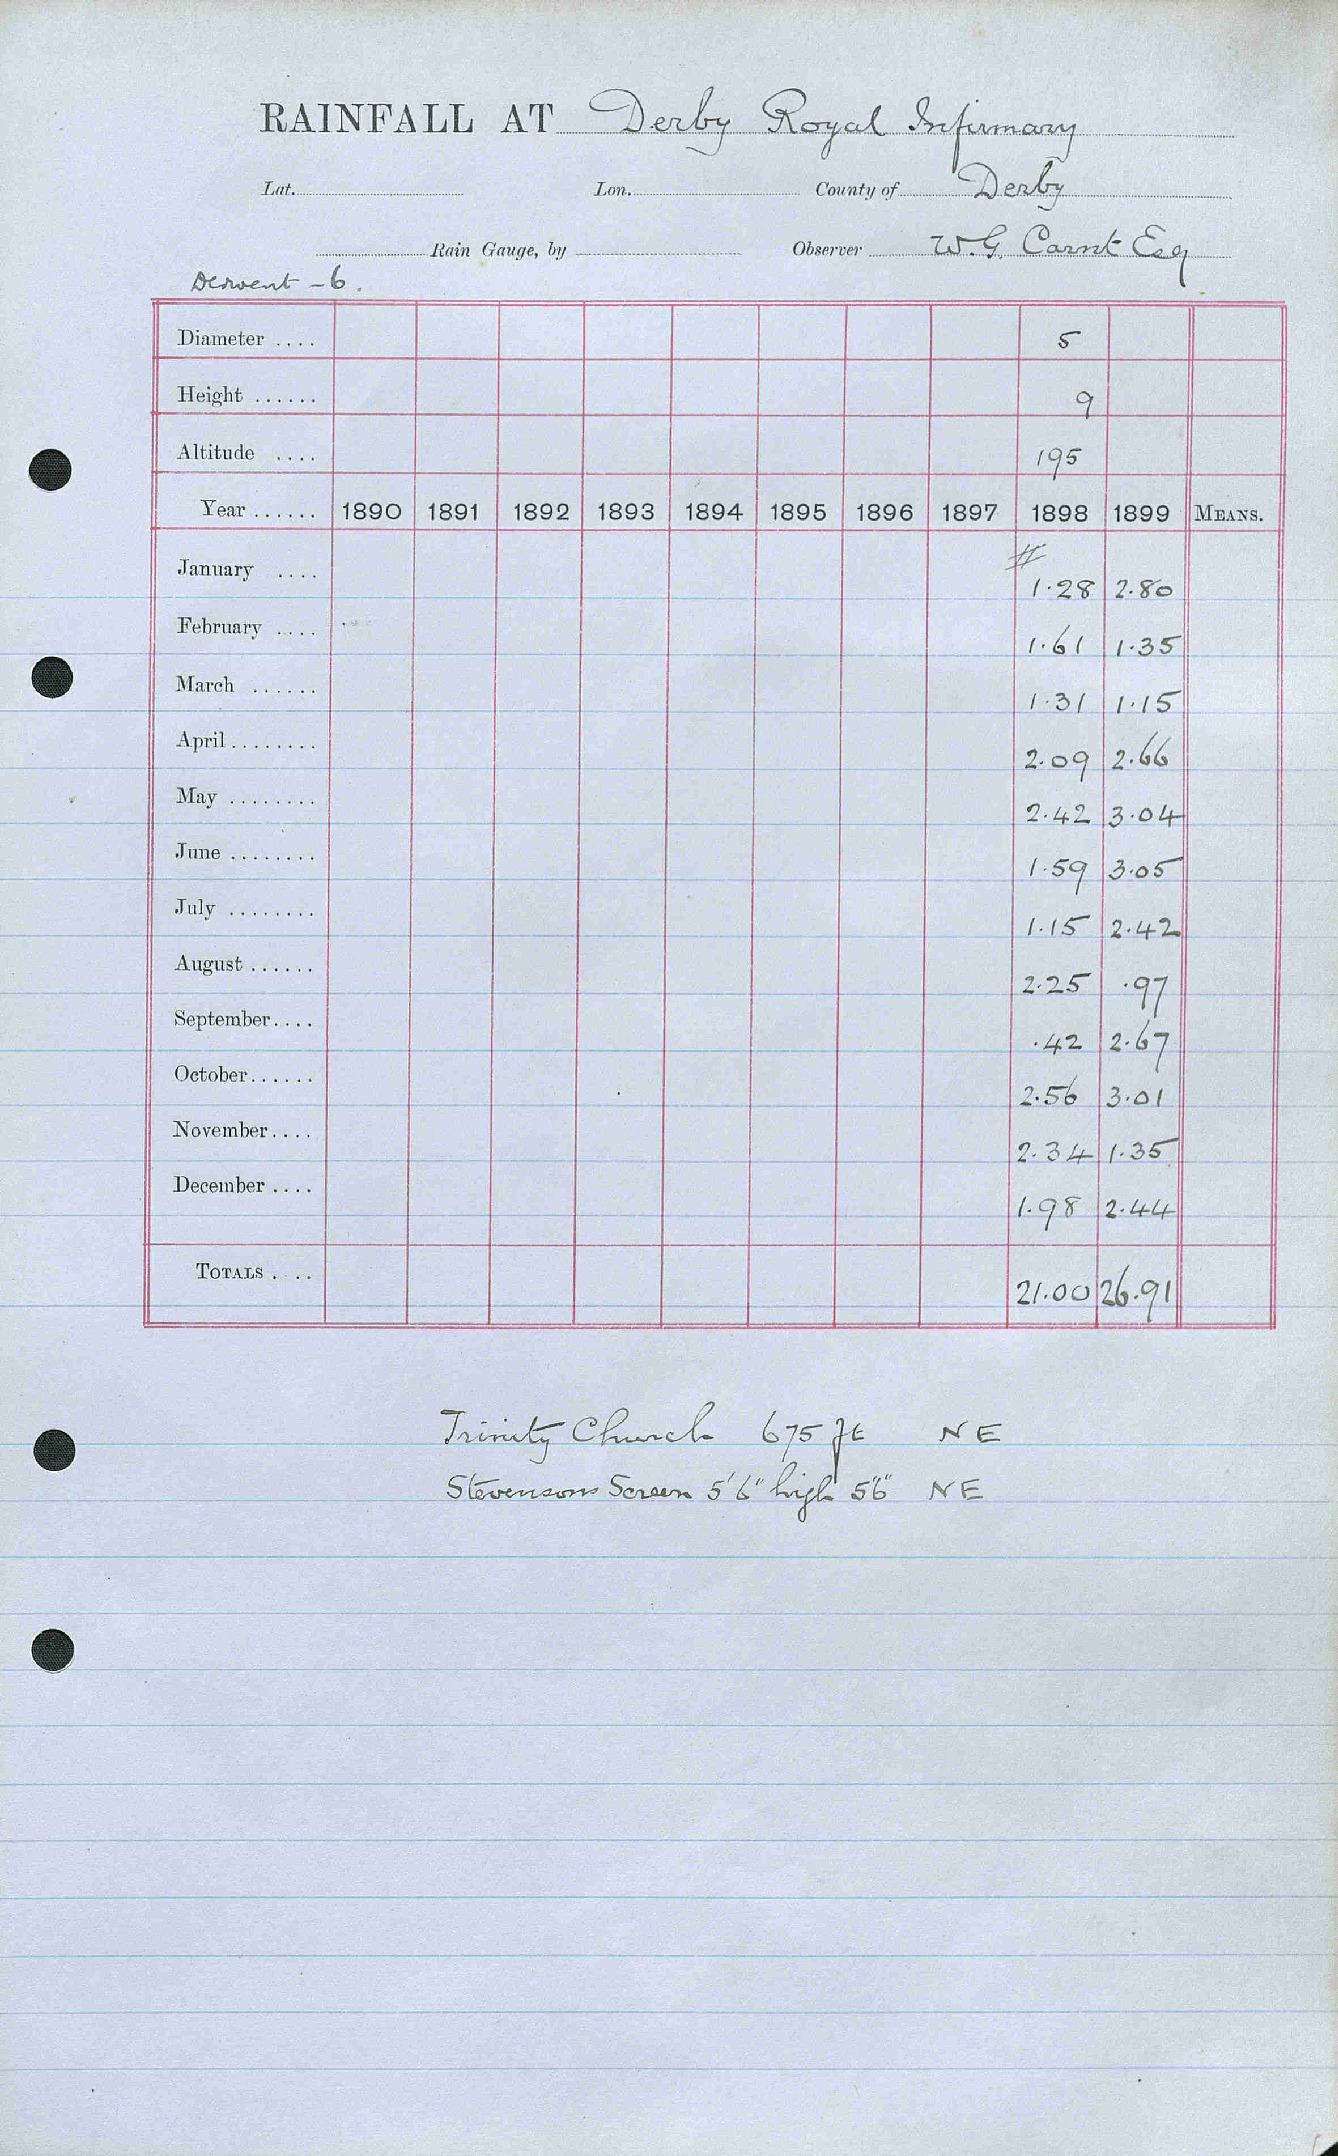 RAINFALL AT Derby Royal Infirmary
Lat. Lon. County of Derby
Rain Gauge, by Observer W.G. Carnt Esq
Derwent - 6.
Diameter .... 5
Height ...... 9
Altitude .... 195
Year ...... 1890 1891 1892 1893 1894 1895 1896 1897 1898 1899 MEANS.
#
January .... 1.28 2.80
February .... 1.61 1.35
March ...... 1.31 1.15
April ........ 2.09 2.66
May ........ 2.42 3.04
June ........ 1.59 3.05
July ........ 1.15 2.42
August ...... 2.25 .97
September.... .42 2.67
October...... 2.56 3.01
November.... 2.34 1.35
December .... 1.98 2.44
TOTALS . .. 21.00 26.91
Trinity Church 675 ft NE
Stevensons Screen 5'6" high 5'6" NE